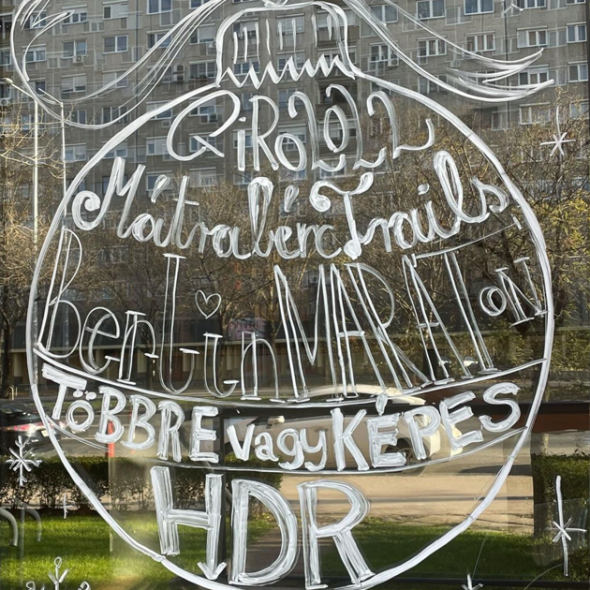 GiRo2022
Mátrabérc Trails
BenTUin MARATON
TöBBRE vagy KÉPES
HDR